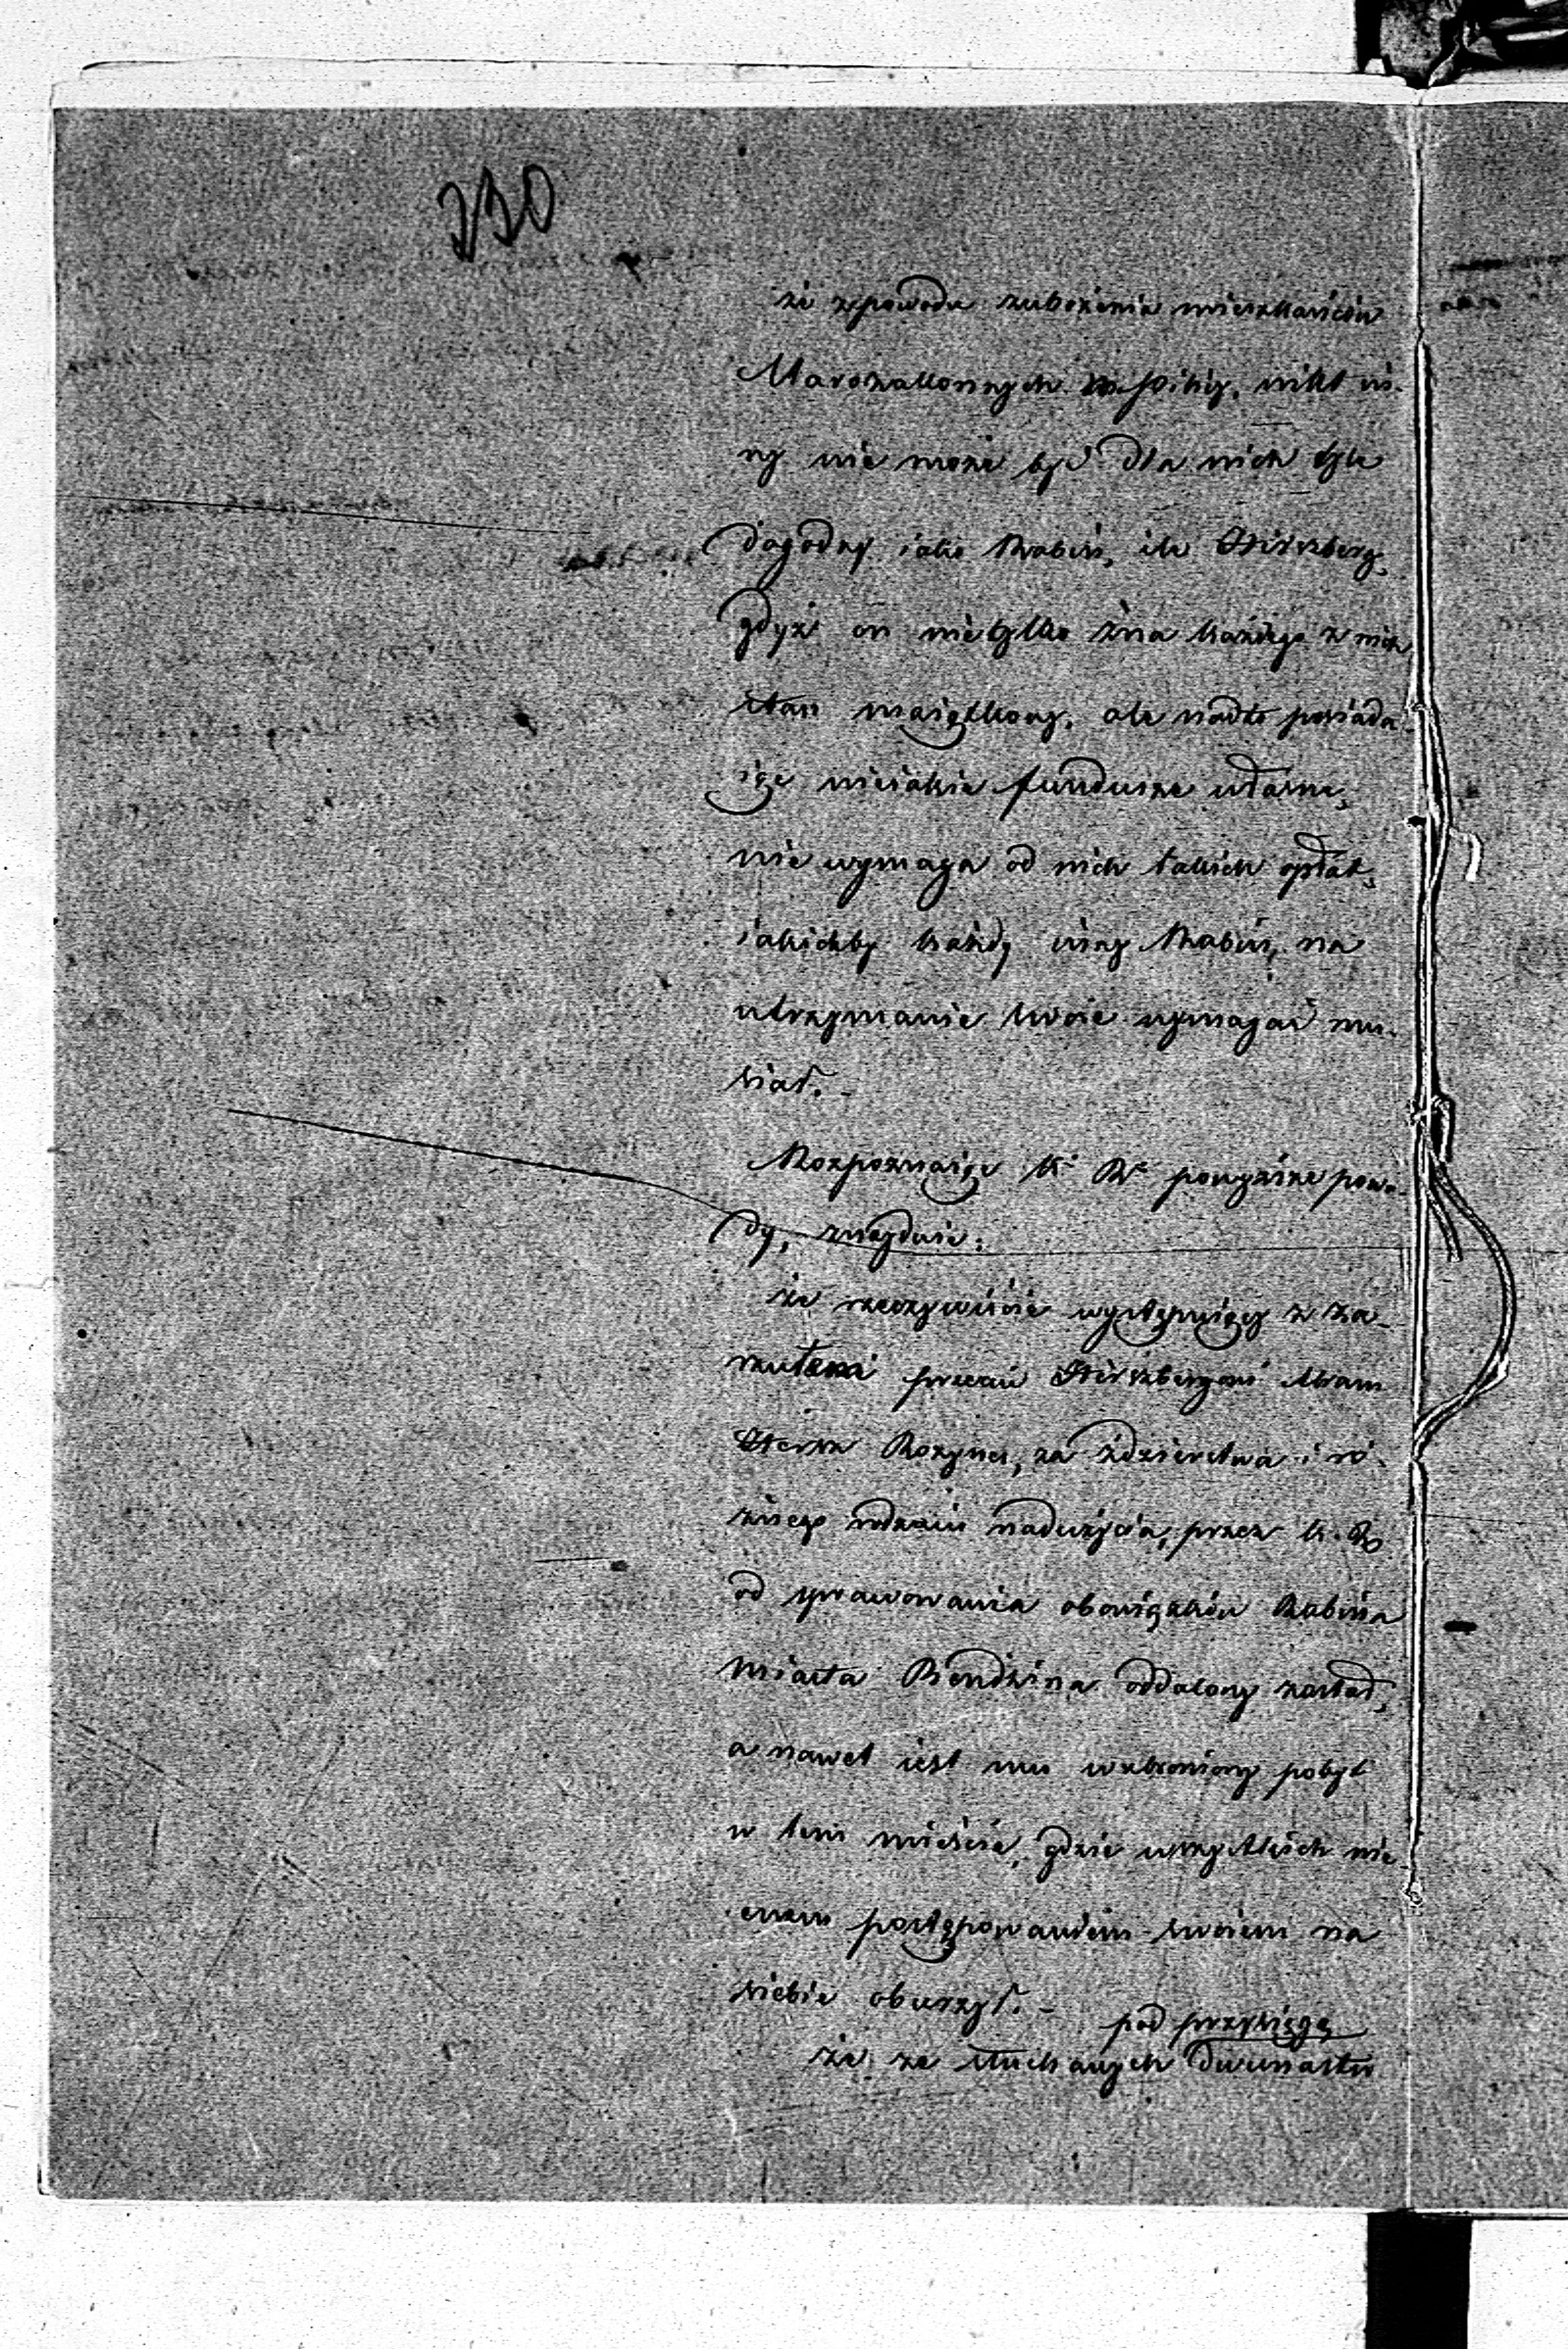 330
że z powodu zubożenia mieszkańców
Starozakonnych w Pilicy, nikt in-
ny nie może być dla nich tyle
dogodny jako Rabin, ile Hirszberg,
gdyż on nietylko zna każdego z nich
stan majątkowy, ale nadto posiada-
iąc nieiakie fundusze własne,
nie wymaga od nich takich opłat,
iakichby każdy inny Rabin, na
utrzymanie swoie wymagać mu-
siał. -
Rozpoznaiąc K. R. powyższe powo-
dy, znayduie:
że rzeczywiście występuiący z za-
rzutami przeciw Hirszbergowi Abram
Hersz Rozynes, za zdzierstwa i ró-
żnego rodzaiu nadużycia, przez K. R.
od sprawowania obowiązków Rabina
miasta Bendzina oddalony został,
a nawet iest mu wzbroniony pobyt
w tem mieście, gdzie wszystkich nie-
cnem postępowaniem swoiem na
siebie oburzył. -
pod przysięgą
że ze słuchanych dwunastu